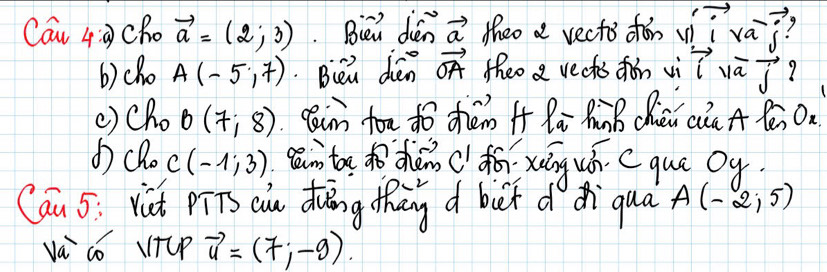 Câu 4: a) Cho a⃗ = (2; 3). Biểu diễn a⃗ theo 2 vectơ đơn vị i⃗ và j⃗?
b) cho A(-5; 7). Biểu diễn OA⃗ theo 2 vectơ đơn vị i⃗ và j⃗?
c) Cho B(7; 8). Tìm tọa độ điểm H là hình chiếu của A lên Ox.
d) Cho C(-1; 3). Tìm tọa độ điểm C' đối xứng với C qua Oy.
Câu 5: Viết PTTS của đường thẳng d biết d đi qua A(-2; 5)
và có VTCP u⃗ = (7; -9).